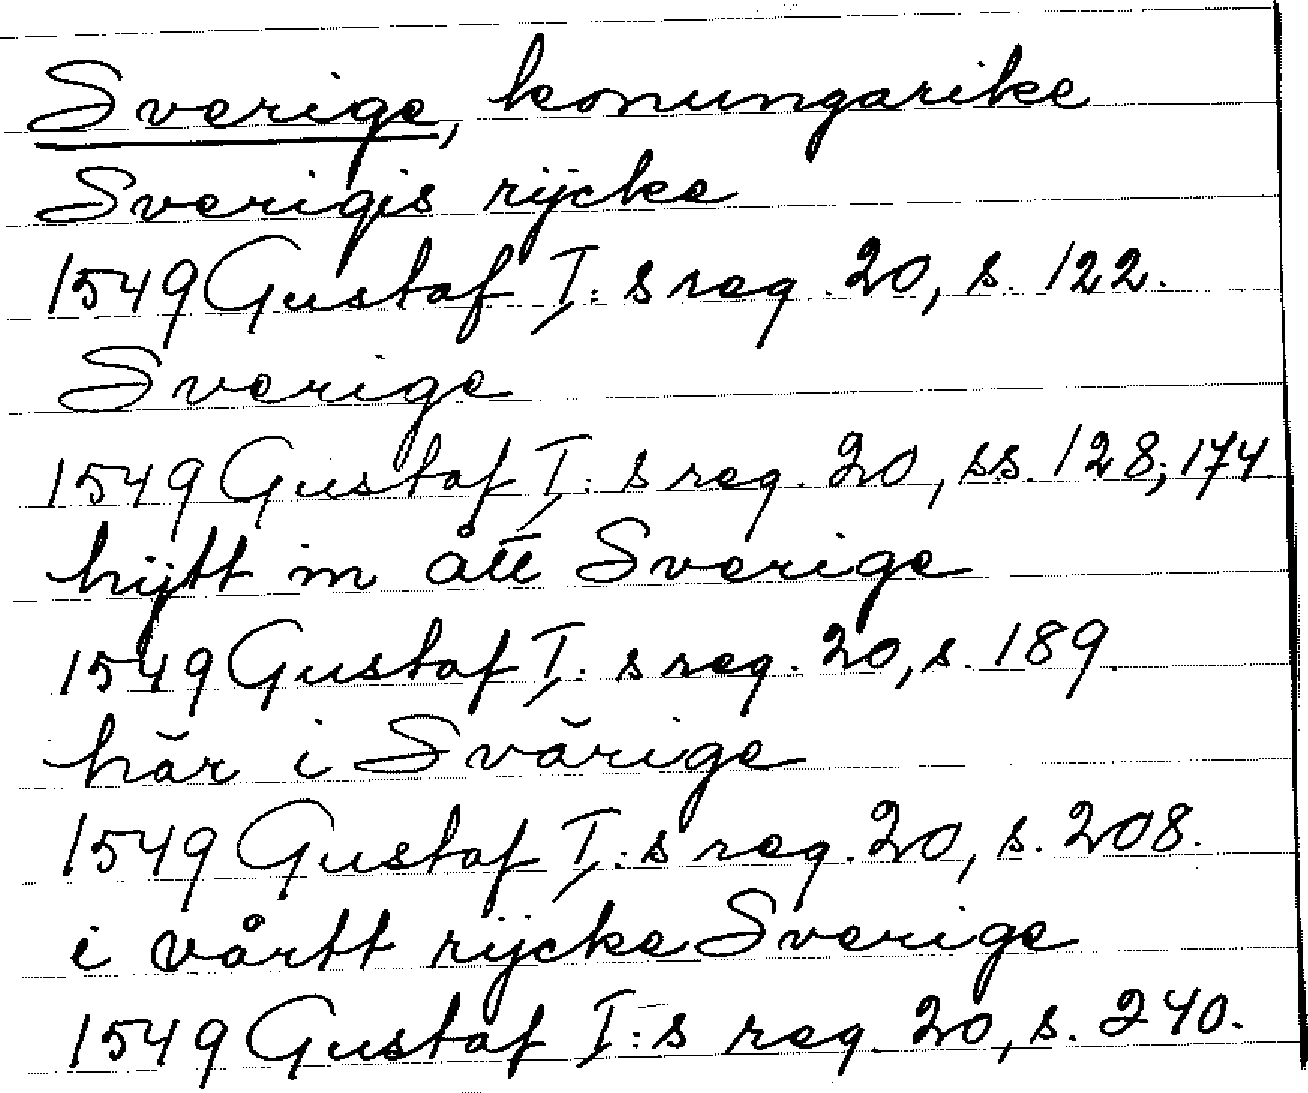 Sverige, konungarike
Sverigis rijcke
1549 Gustaf I:s reg. 20, s. 122.
Sverige
1549 Gustaf I:s reg. 20, ss. 128; 174
hijtt in ått Sverige
1549 Gustaf I:s reg. 20, s. 189.
hăr i Svărige
1549 Gustaf I:s reg. 20, s. 208.
i vårtt rijcke Sverige
1549 Gustaf I:s reg. 20, s. 240.